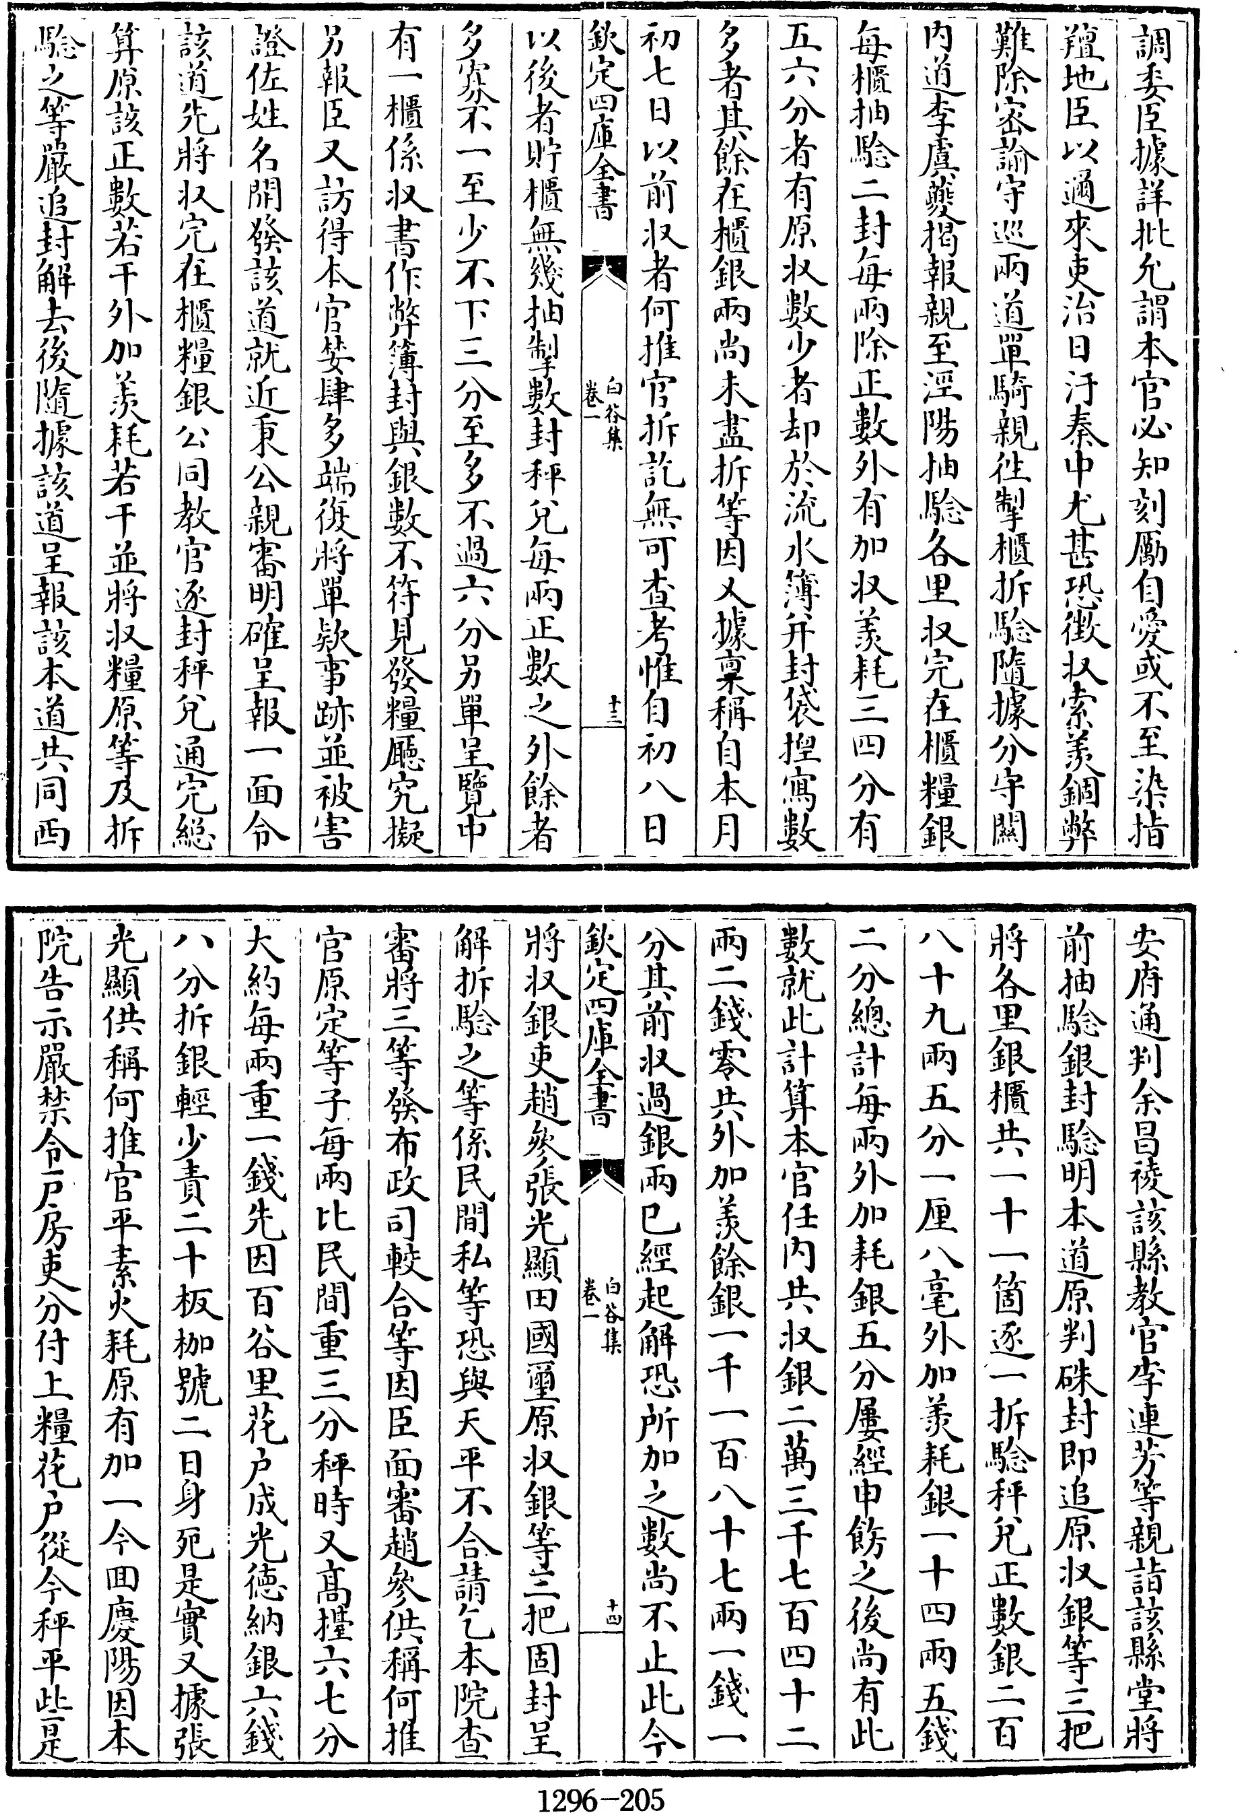 調委臣據詳批允謂本官必知刻厲自愛或不至染指
羶地臣以邇來吏治日汙秦中尤甚恐徵収索羨錮弊
難除密諭守巡兩道單騎親徃掣櫃拆驗隨據分守關
内道李虞夔揭報親至涇陽抽驗各里収完在櫃糧銀
每櫃抽驗二封每兩除正數外有加収羨耗三四分有
五六分者有原収數少者却於流水簿并封袋揑寫數
多者其餘在櫃銀兩尚未盡拆等因又據稟稱自本月
初七日以前収者何推官拆訖無可查考惟自初八日
欽定四庫全書
白谷集
卷一
十三
以後者貯櫃無幾抽掣數封秤兌每兩正數之外餘者
多寡不一至少不下三分至多不過六分另單呈覽中
有一櫃係収書作弊簿封與銀數不符見發糧廳究擬
另報臣又訪得本官婪肆多端復將單欵事跡並被害
證佐姓名開發該道就近秉公親審明確呈報一面令
該道先將収完在櫃糧銀公同教官逐封秤兌通完總
算原該正數若干外加羨耗若干並將収糧原等及拆
驗之等嚴追封解去後隨據該道呈報該本道共同西
安府通判余昌祾該縣教官李連芳等親詣該縣堂將
前抽驗銀封驗明本道原判硃封即追原収銀等三把
將各里銀櫃共一十一箇逐一拆驗秤兌正數銀二百
八十九兩五分一厘八毫外加羨耗銀一十四兩五錢
二分總計每兩外加耗銀五分屢經申飭之後尚有此
數就此計算本官任内共収銀二萬三千七百四十二
兩二錢零共外加羨餘銀一千一百八十七兩一錢一
分其前収過銀兩已經起解恐所加之數尚不止此今
欽定四庫全書
白谷集
卷一
十四
將収銀吏趙參張光顯田國璽原収銀等三把固封呈
解拆驗之等係民間私等恐與天平不合請乞本院查
審將三等發布政司較合等因臣面審趙參供稱何推
官原定等子每兩比民間重三分秤時又髙擡六七分
大約每兩重一錢先因百谷里花户成光德納銀六錢
八分拆銀輕少責二十板枷號二日身死是實又據張
光顯供稱何推官平素火耗原有加一今囬慶陽因本
院告示嚴禁令戸房吏分付上糧花户從今秤平些是
1296-205